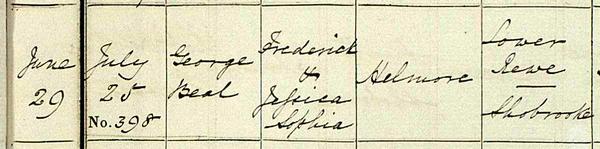 June
29
July
25
No. 398
George
Beal
Frederick
&
Jessica
Sophia
Helmore
Lower
Rewe
Shobrooke